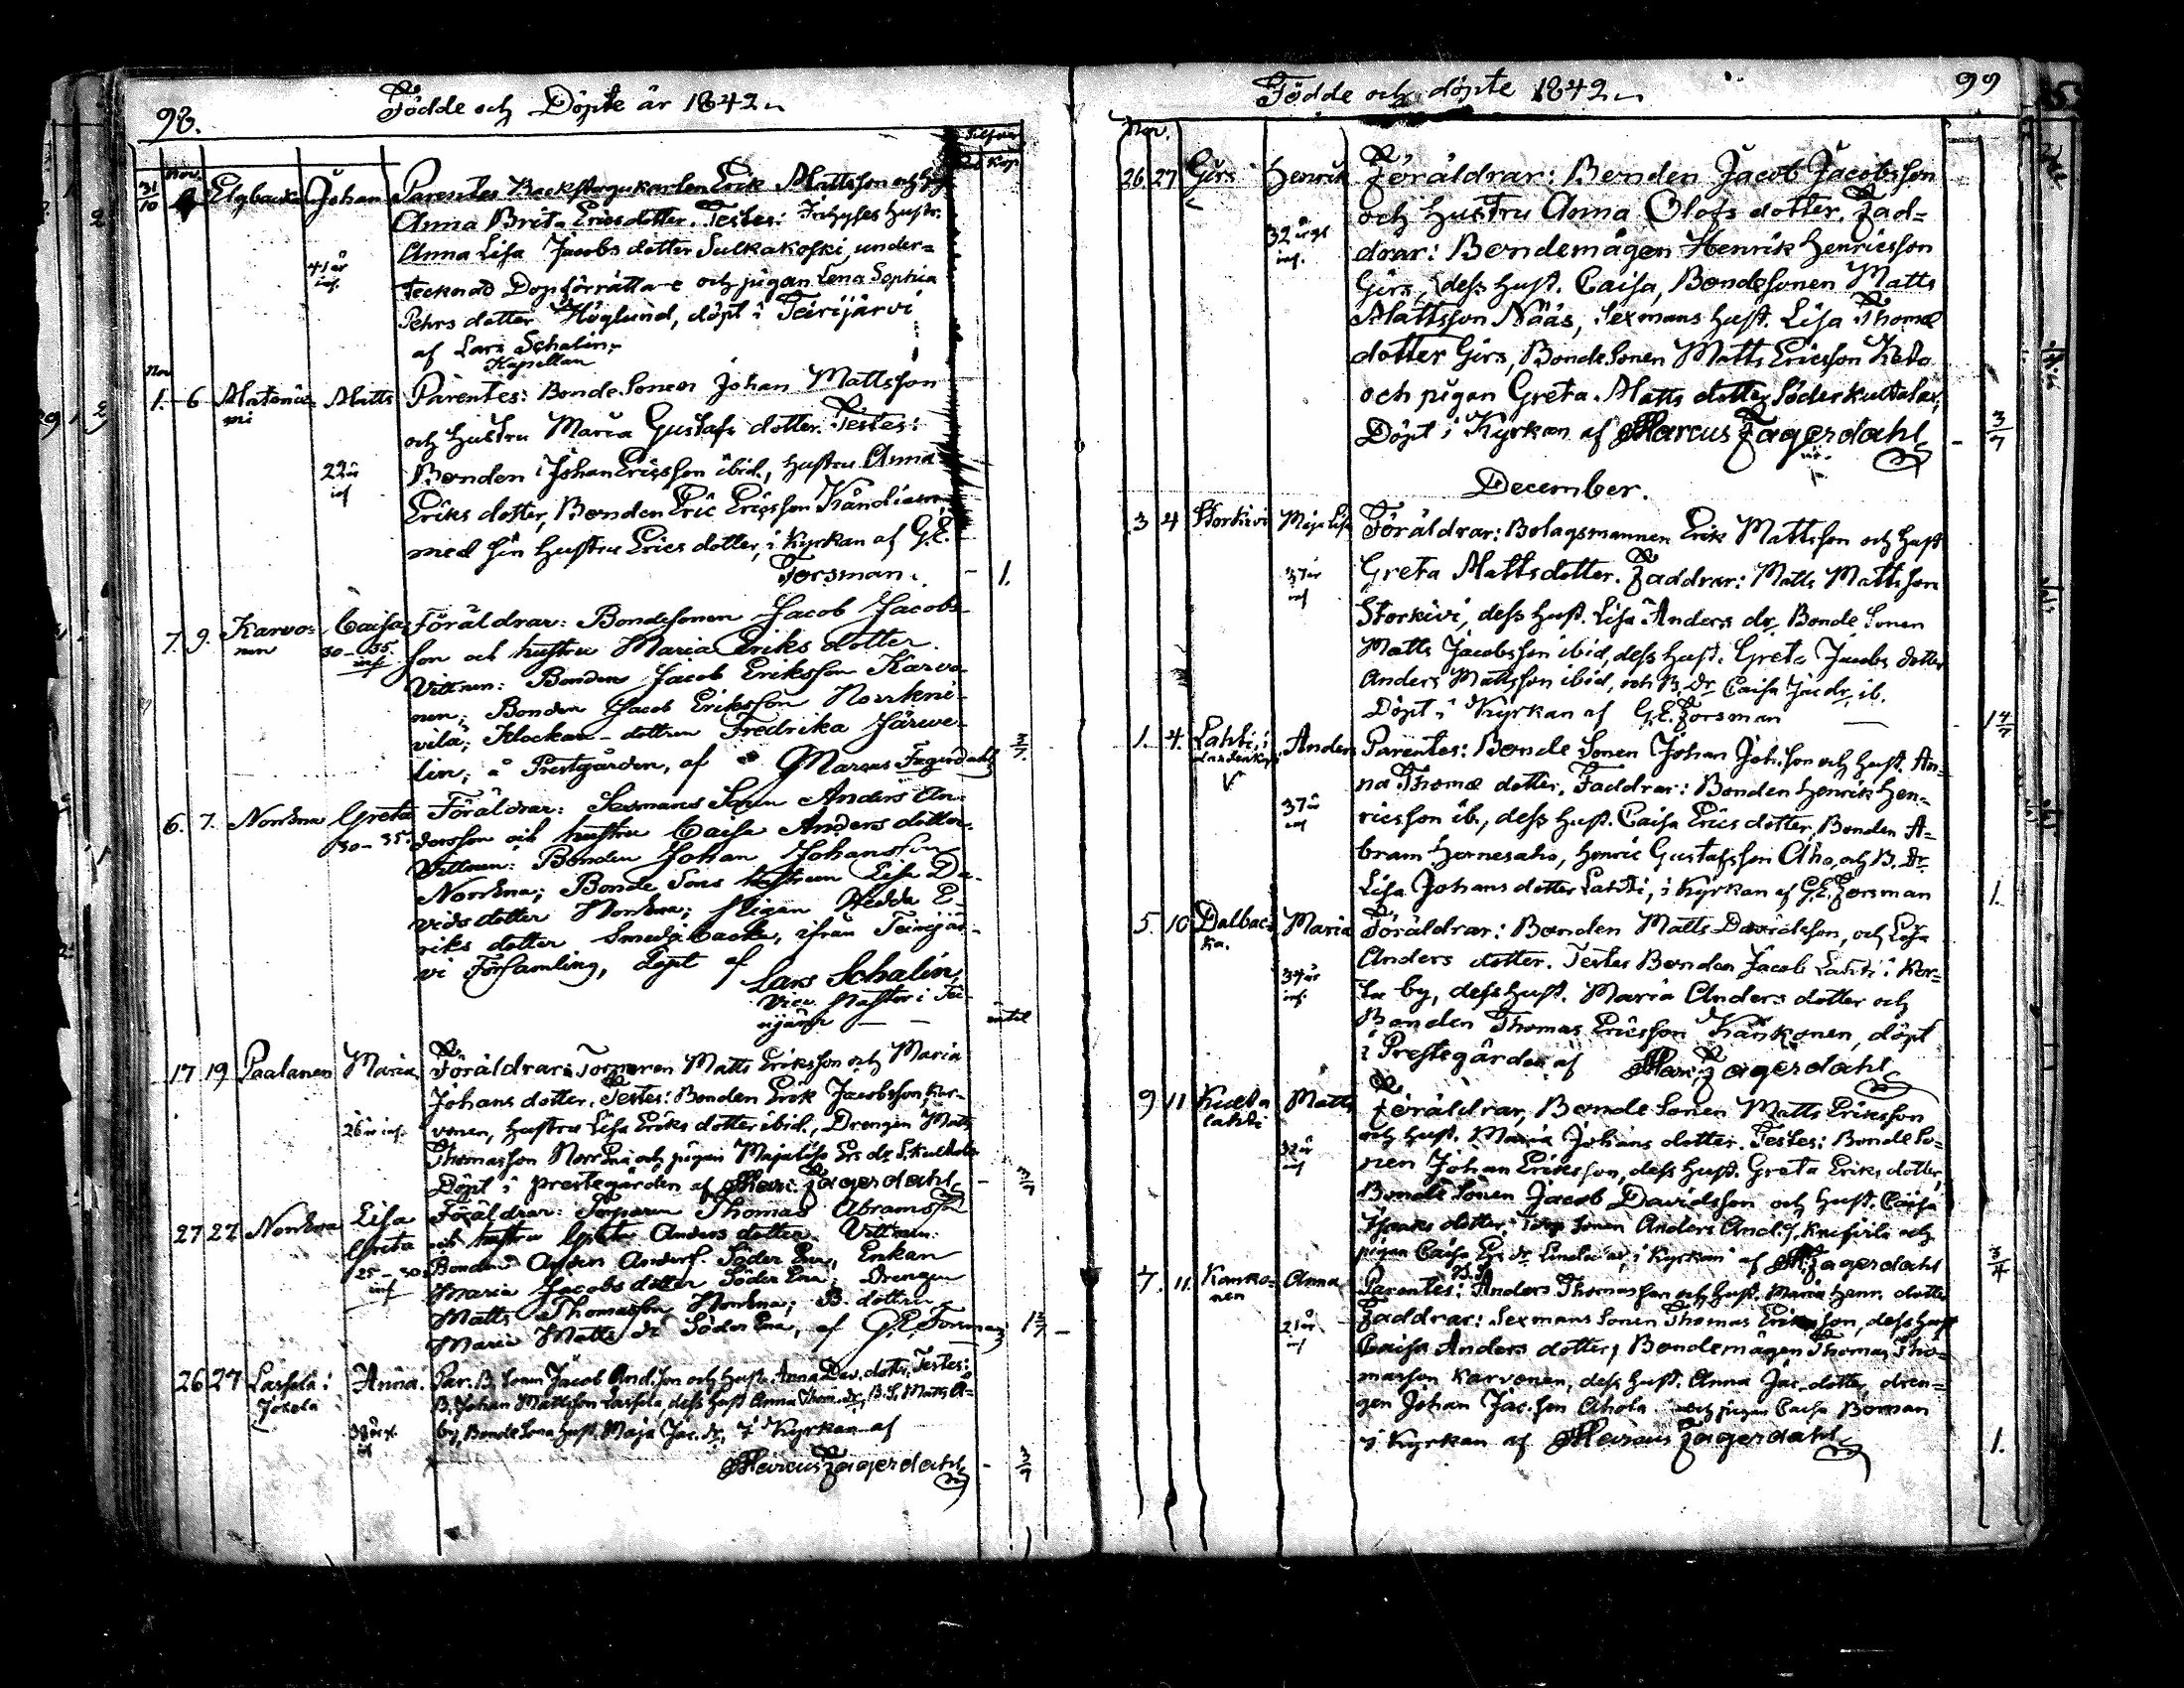 98.
Födde och Döpte år 1842
Silfver
Kop
Nov.
31/10 Elgbacka Johan Parentes Backstugukarlen Erik Mattsson och
Anna Brita Ericsdotter. Testes: Inhyses hustr.
Anna Lisa Jacobs dotter Sulkakoski, under=
41 år tecknad Dopförrättare och pigan Lena Sophia
Pehrs dotter Höglund, döpt i Terijärvi
af Lars Schalin
Kapellan
Nov
1. 6 Matts Parentes: Bonde Sonen Johan Mattsson
och hustru Maria Gustafs dotter. Testes:
22 år Bonden Johan Ericsson ibid., hustru Anna
Eriks dotter, Bonden Eric Ericsson
med sin hustru Erics dotter, i Kyrkan af G.E.
Forsman. 1.
7. 9. Karvo= Caisa Föräldrar: Bondesonen Jacob Jacobs-
nen 30-35. son och hustru Maria Eriks dotter.
Vittnen: Bonden Jacob Eriksson Karvo-
nen; Bonden Jacob Eriksson Norrkni-
vilä; Klockare-dottren Fredrika Järve-
lin; å Prestgården, af Marcus Fagerdahl 3/7.
6. 7. Norrena Greta Föräldrar: Sexmans Sonen Anders An-
30-35. dersson och hustru Caisa Anders dotter.
Vittnen: Bonden Johan Johansson
Norrena; Bonde Sons hustrun Lisa Da-
vids dotter Norrena; Pigan Hedda E-
riks dotter Smedjebacka, ifrån Terijär-
vi Församling, döpt af
Lars Schalin,
Vice Pastor i Te-
rijärfvi
17 19 Paalanen Maria Föräldrar: Torparen Matts Eriksson och Maria
Johans dotter. Testes: Bonden Erik Jacobsson Kar-
26 år vonen, hustru Lisa Eriks dotter ibid., Drengen Matts
Thomasson Norrena och pigan Majalisa Ers dr
Döpt i prestegården af Marc. Fagerdahl 3/7
27 27 Norrena Lisa Föräldrar: Torparen Thomas Abramsson
Greta och hustru Greta Anders dotter. Vittnen:
25-30 Bonden Anders Anderss. Söder Ena, Enkan
Maria Jacobs dotter Söder Ena; Drengen
Matts Thomasson Norrena; B. dottren
Maria Matts dr Söder Ena, af G.E. Forsman
26 27 Lassila i Anna. Par. B. Sonen Jacob And.son och hust. Anna Dav. dotter, Testes:
Jokela B. Johan Mattsson Lassila, dess hust Anna Thom. dr, B.S. Matts A-
by, Bonde Sona hust. Maja Jac. dr, i Kyrkan af
Marcus Fagerdahl 3/7
Födde och döpte 1842
99
Nov.
26 27 Girs Henrik Föräldrar: Bonden Jacob Jacobsson
och hustru Anna Olofs dotter. Fad=
32 årgl drar: Bondemågen Henrik Henricsson
Girs, dess hust. Caisa, Bondesonen Matts
Mattsson Nääs, Sexmans hust. Lisa Thomæ
dotter Girs, Bonde Sonen Matts Ericsson
och pigan Greta Matts dotter
Döpt i Kyrkan af Marcus Fagerdahl 3/7
December.
3 4 Storkivi Maja Lisa Föräldrar: Bolagsmannen Erik Mattsson och hust
37 år Greta Mattsdotter. Faddrar: Matts Mattsson
Storkivi, dess hust. Lisa Anders dr, Bonde Sonen
Matts Jacobsson ibid, dess hust. Greta Jacobs dotter
Anders Mattsson ibid, och B. dr Caisa Jac dr, ib.
Döpt i Kyrkan af G.E. Forsman
1. 4. Lahti, i Anders Parentes: Bonde Sonen Johan Joh.son och hust. An-
na Thomæ dotter. Faddrar: Bonden Henrik Hen-
37 år ricsson ib., dess hust. Caisa Erics dotter, Bonden A-
bram Hernesaho, Henric Gustafsson Aho, och B. dr
Lisa Johans dotter Lahti, i Kyrkan af G.E. Forsman 1.
5. 10 Dalbac- Maria Föräldrar: Bonden Matts Davidsson, och Lisa
ka. Anders dotter. Testes Bonden Jacob Lahti i Kor-
by, dess hust. Maria Anders dotter och
Bonden Thomas Ericsson Känkänen, döpt
i Prestegården af Marc. Fagerdahl
9 11 Matts Föräldrar, Bonde Sonen Matts Eriksson
lahti och hust. Maria Johans dotter. Testes: Bonde So-
32 år nen Johan Eriksson, dess hust. Greta Eriks dotter,
Bonde Sonen Jacob Davidsson och hust. Caisa
Isaaks dotter, Torp Sonen Anders And.s. och
pigan Caisa Ers dr i Kyrkan af M. Fagerdahl
7. 11. Kanko- Anna Parentes: Anders Thomasson och hust. Maria Henr. dotter
nen Faddrar: Sexmans Sonen Thomas Eriksson, dess hust
21 år Caisa Anders dotter, Bondemågen Thomas Tho-
masson Karvonen, dess hust. Anna Jac. dotter, dren-
gen Johan Jac.son Ahola och pigan Caisa Boman
i Kyrkan af Marcus Fagerdahl 1.